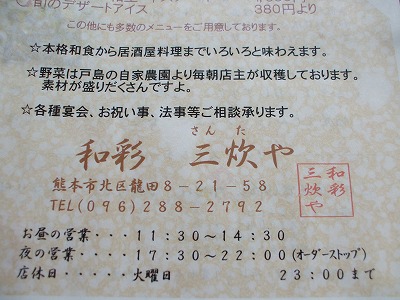 旬のデザートアイス 380円より
この他にも多数のメニューをご用意しております。
☆本格和食から居酒屋料理までいろいろと味わえます。
☆野菜は戸島の自家農園より毎朝店主が収穫しております。
素材が盛りだくさんですよ。
☆各種宴会、お祝い事、法事等ご相談承ります。
さんた
和彩 三炊や
熊本市北区龍田8-21-58
TEL(096)288-2792
和彩
三炊や
お昼の営業・・・・11:30~14:30
夜の営業・・・・・17:30~22:00(オーダーストップ)
店休日・・・・・火曜日 23:00まで